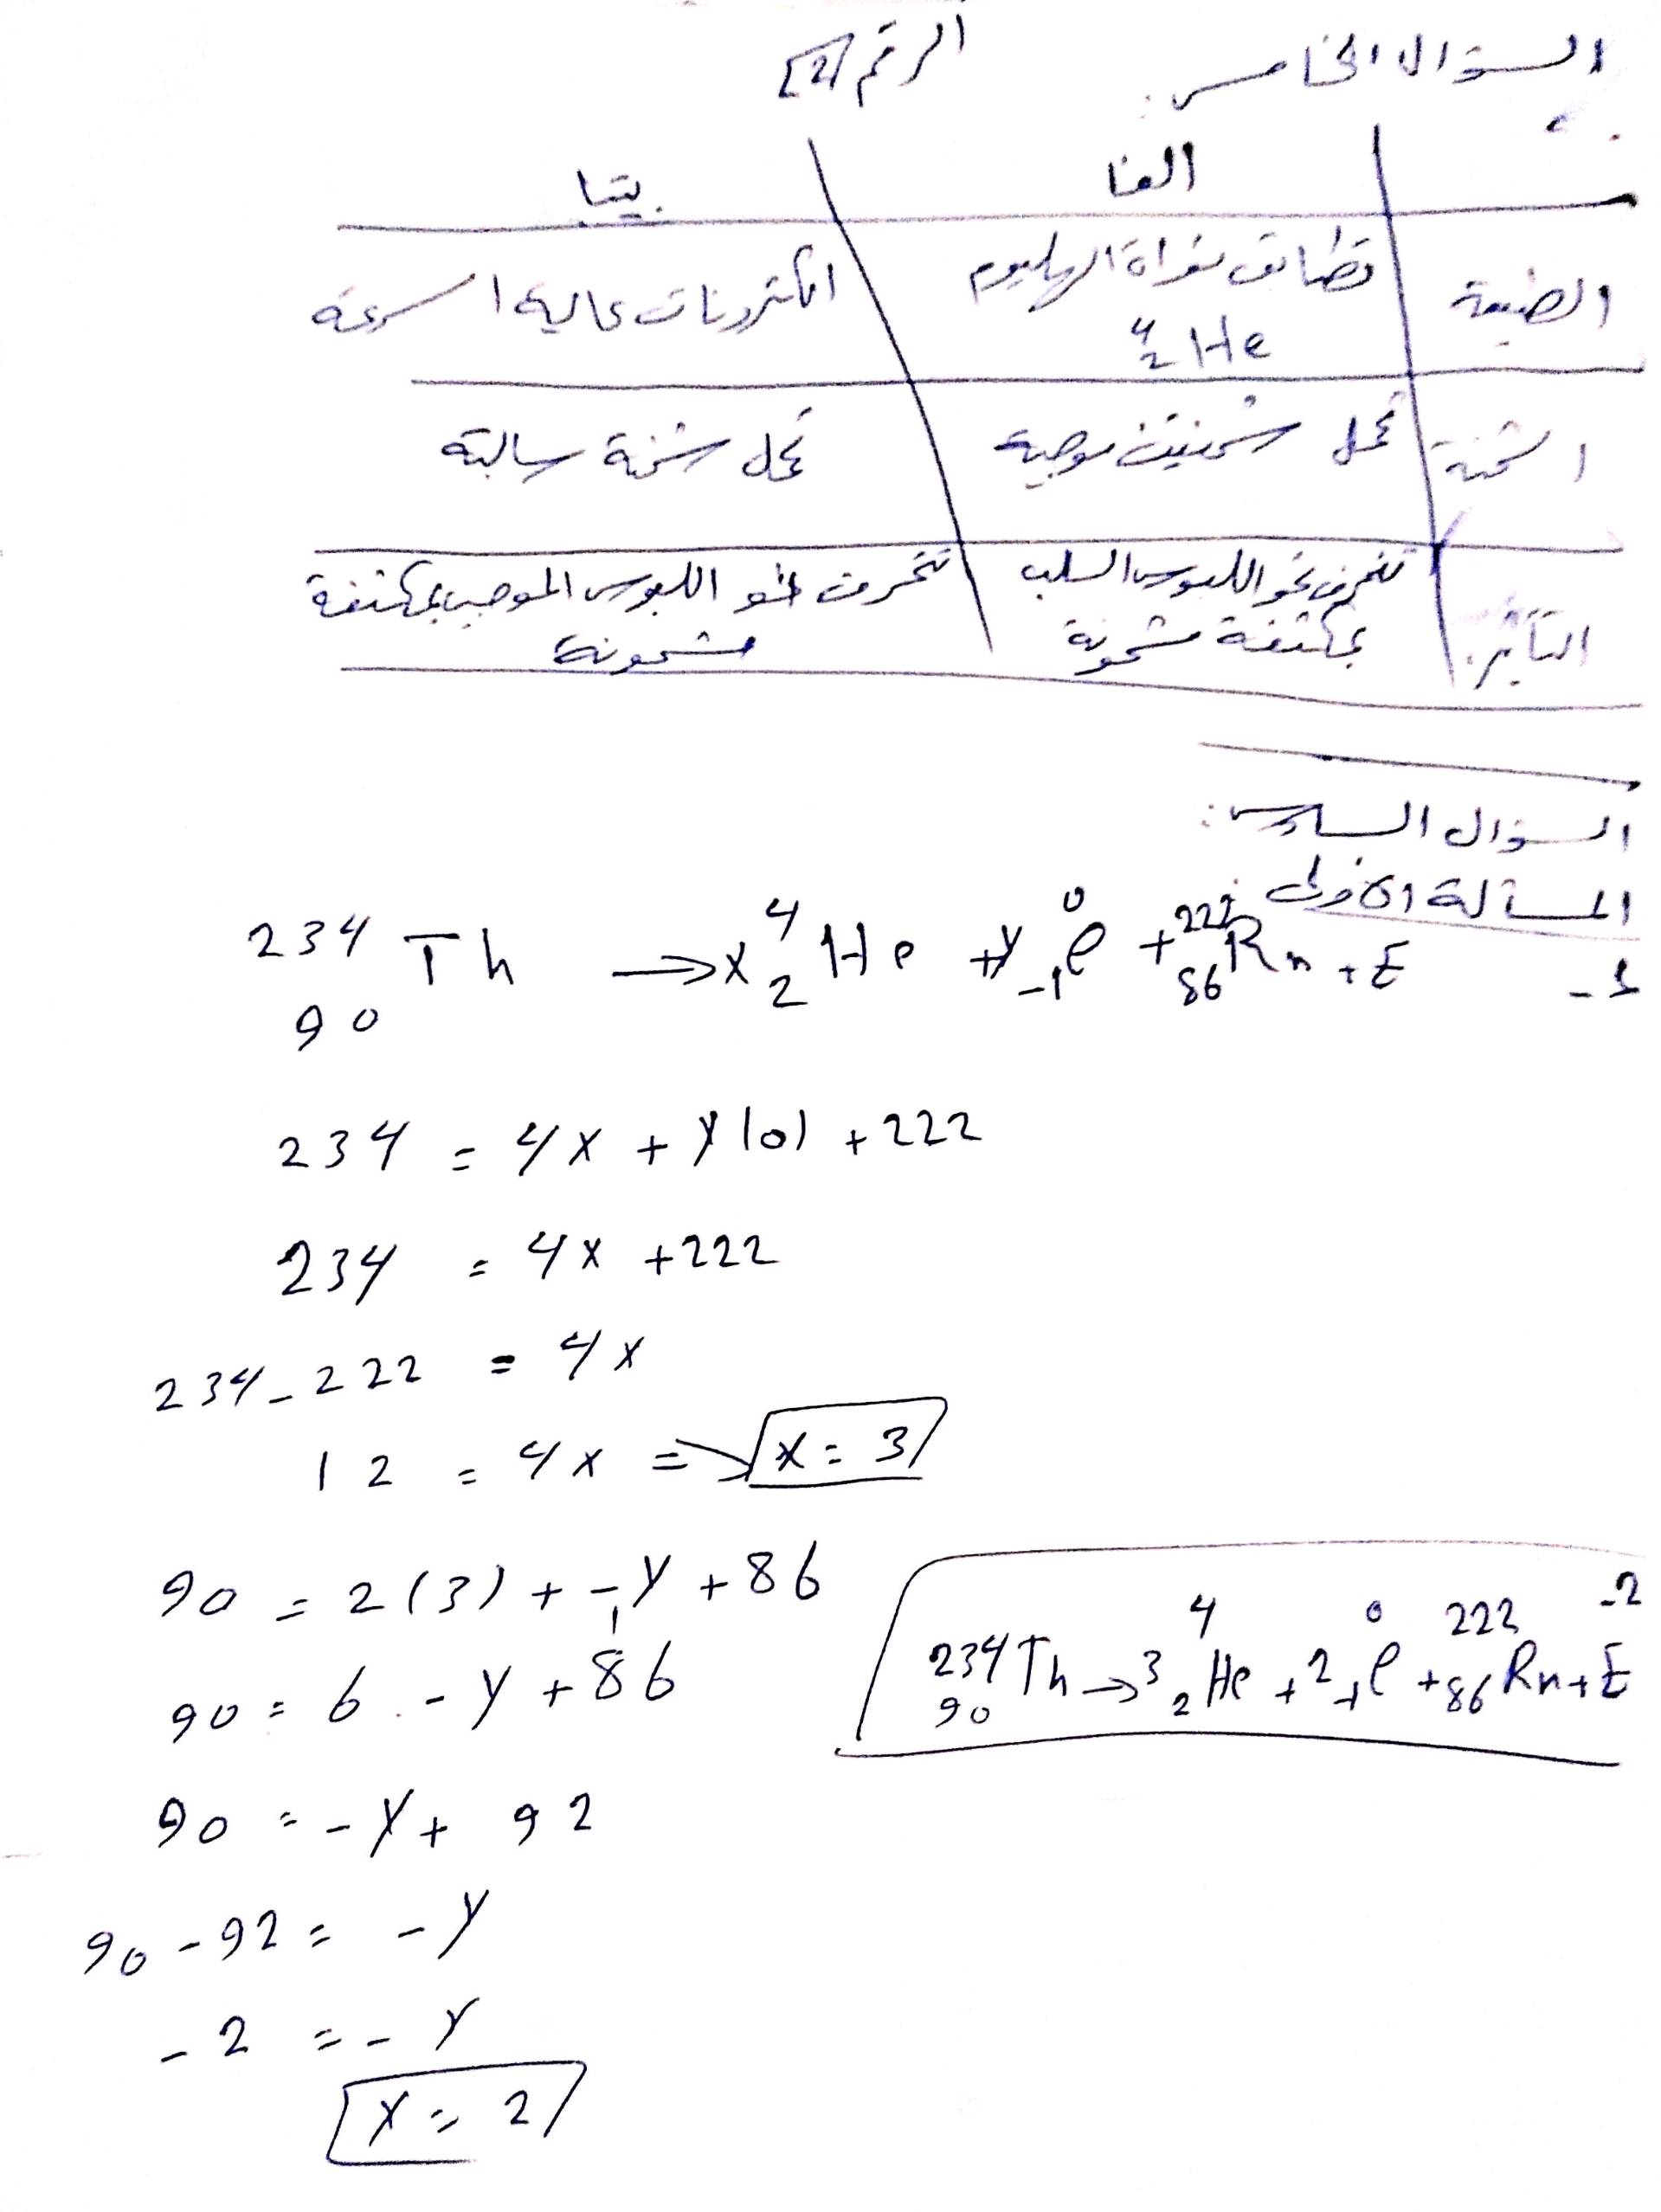 السؤال الخامس: الرقم [2]
ألفا بيتا
الطبيعة تطابق نواة الهليوم الكترونات عالية السرعة
⁴₂He
الشحنة تحمل شحنتين موجبة تحمل شحنة سالبة
التأثير تنحرف نحو اللبوس السالب تنحرف نحو اللبوس الموجب لمكثفة
لمكثفة مشحونة مشحونة
السؤال السادس:
المسألة الأولى:
1- ²³⁴₉₀Th → x ⁴₂He + y ⁰₋₁e + ²²²₈₆Rn + E
234 = 4x + y(0) + 222
234 = 4x + 222
234 - 222 = 4x
12 = 4x ⇒ x = 3
90 = 2(3) + -1y + 86
90 = 6 - y + 86
90 = -y + 92
90 - 92 = -y
-2 = -y
x = 2
-2
²³⁴₉₀Th → 3 ⁴₂He + 2 ⁰₋₁e + ²²²₈₆Rn + E